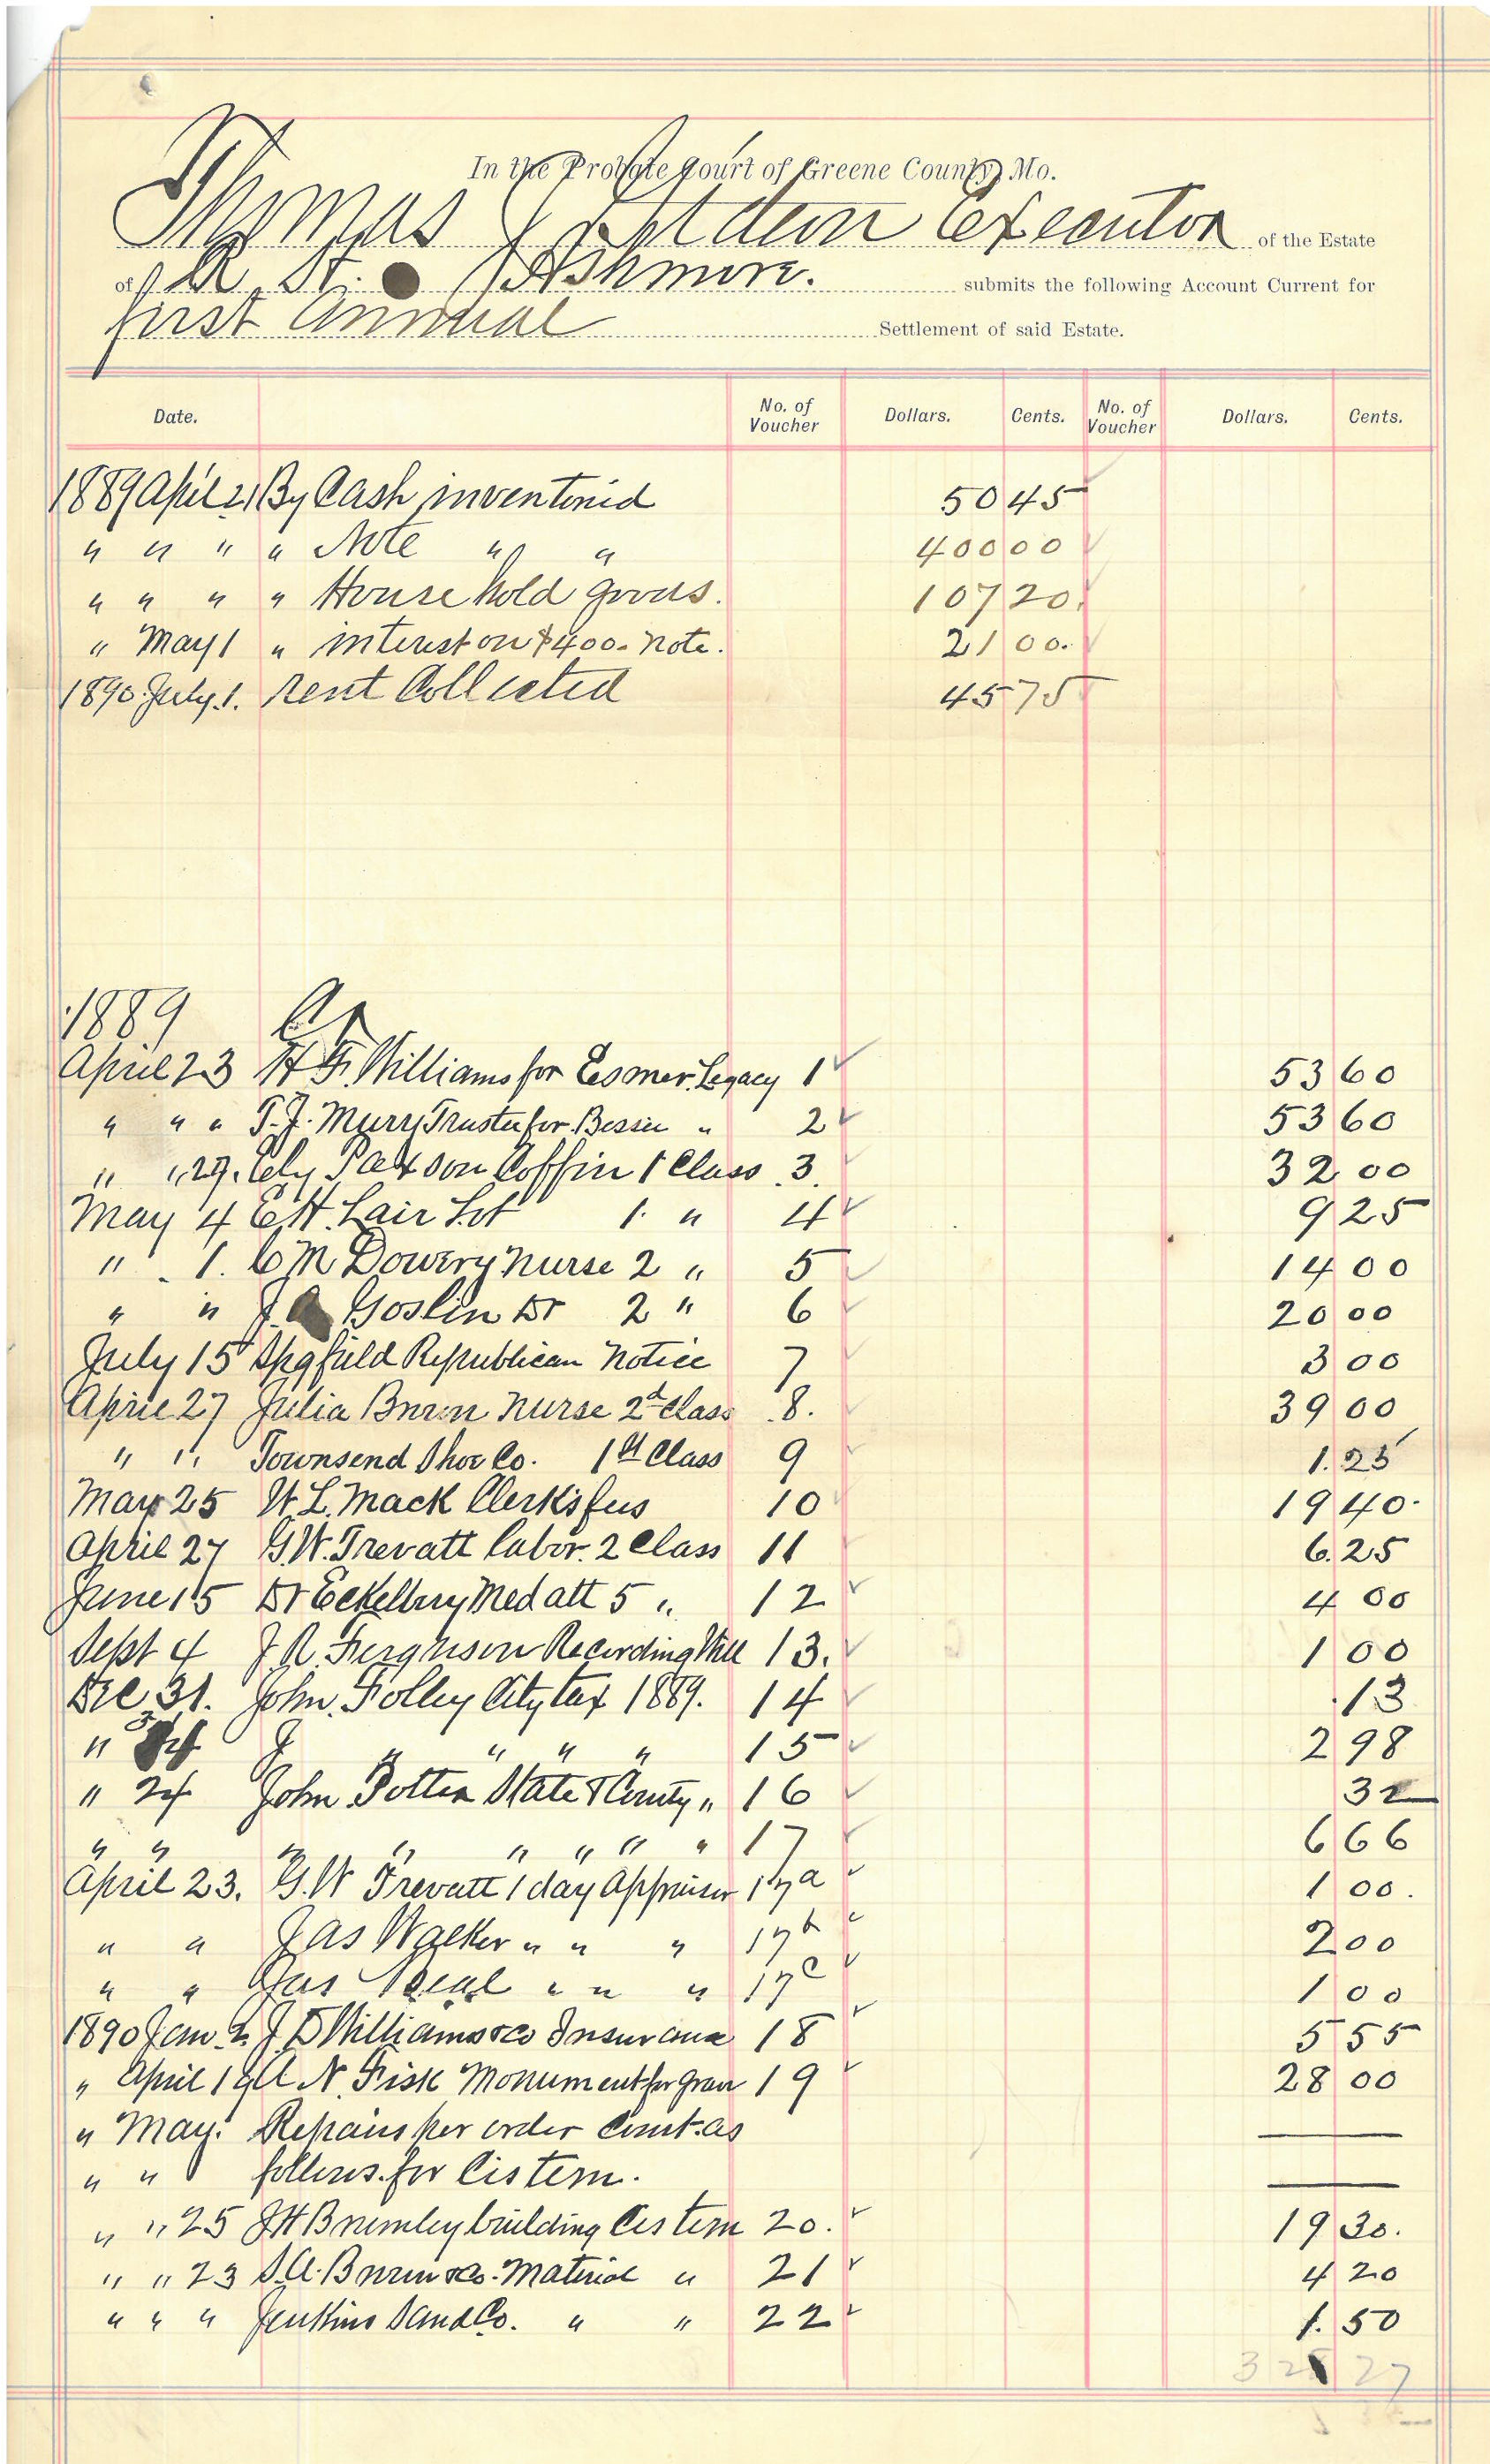 In the Probate Court of Greene County, Mo.
Thomas Executor of the Estate
of St. Ashmore. submits the following Account Current for
first Annual Settlement of said Estate.
Date. No. of Voucher Dollars. Cents. No. of Voucher Dollars. Cents.
1889 April 21 By Cash inventoried 50 45
" " " " Note " " 400 00
" " " " House hold goods. 107 20.
" May 1 " interest on $400. note. 21 00.
1890 July. 1. rent Collected 45 75
1889 Cr
April 23 H F. Williams for Esmer. Legacy 1 53 60
" " " T. J. Murry Trustee for Bessie " 2 53 60
" " 27. Ely Paxson Coffin 1 Class 3. 32 00
May 4 E H. Lair Lot 1. " 4 9 25
" 1. C M Dowery nurse 2 " 5 14 00
" " J. Goslin Dr 2 " 6 20 00
July 15 Spgfield Republican Notice 7 3 00
April 27 Julia Burn nurse 2d Class 8. 39 00
" " Townsend Shoe Co. 1st Class 9 1. 25
May 25 W. L. Mack Clerk's fees 10 19 40.
April 27 G. W. Trevatt labor. 2 Class 11 6. 25
June 15 Dr Eckelbury Med att 5 " 12 4 00
Sept 4 J. R. Ferguson Recording Will 13. 1 00
Dec 31. John. Folley City tax 1889. 14 .13
" J " " " " 15 2 98
" 24 John Potter State & County " 16 32
" " " " " " " " 17 6 66
April 23. G. W Trevatt 1 day Appraiser 17a 1 00.
" " Jas Walker " " " 17b 2 00
" " Jas " " " 17c 1 00
1890 Jan. 2. J D Williams & co Insurance 18 5 55
" April 19 A N. Fisk Monument for grave 19 28 00
" May. Repairs per order Court. as
" " follows. for Cistern.
" " 25 J H Brumley building Cistern 20. 19 30.
" " 23 S. A. Brown & Co. Material " 21 4 20
" " " Jenkins Sand Co. " " 22 1. 50
27